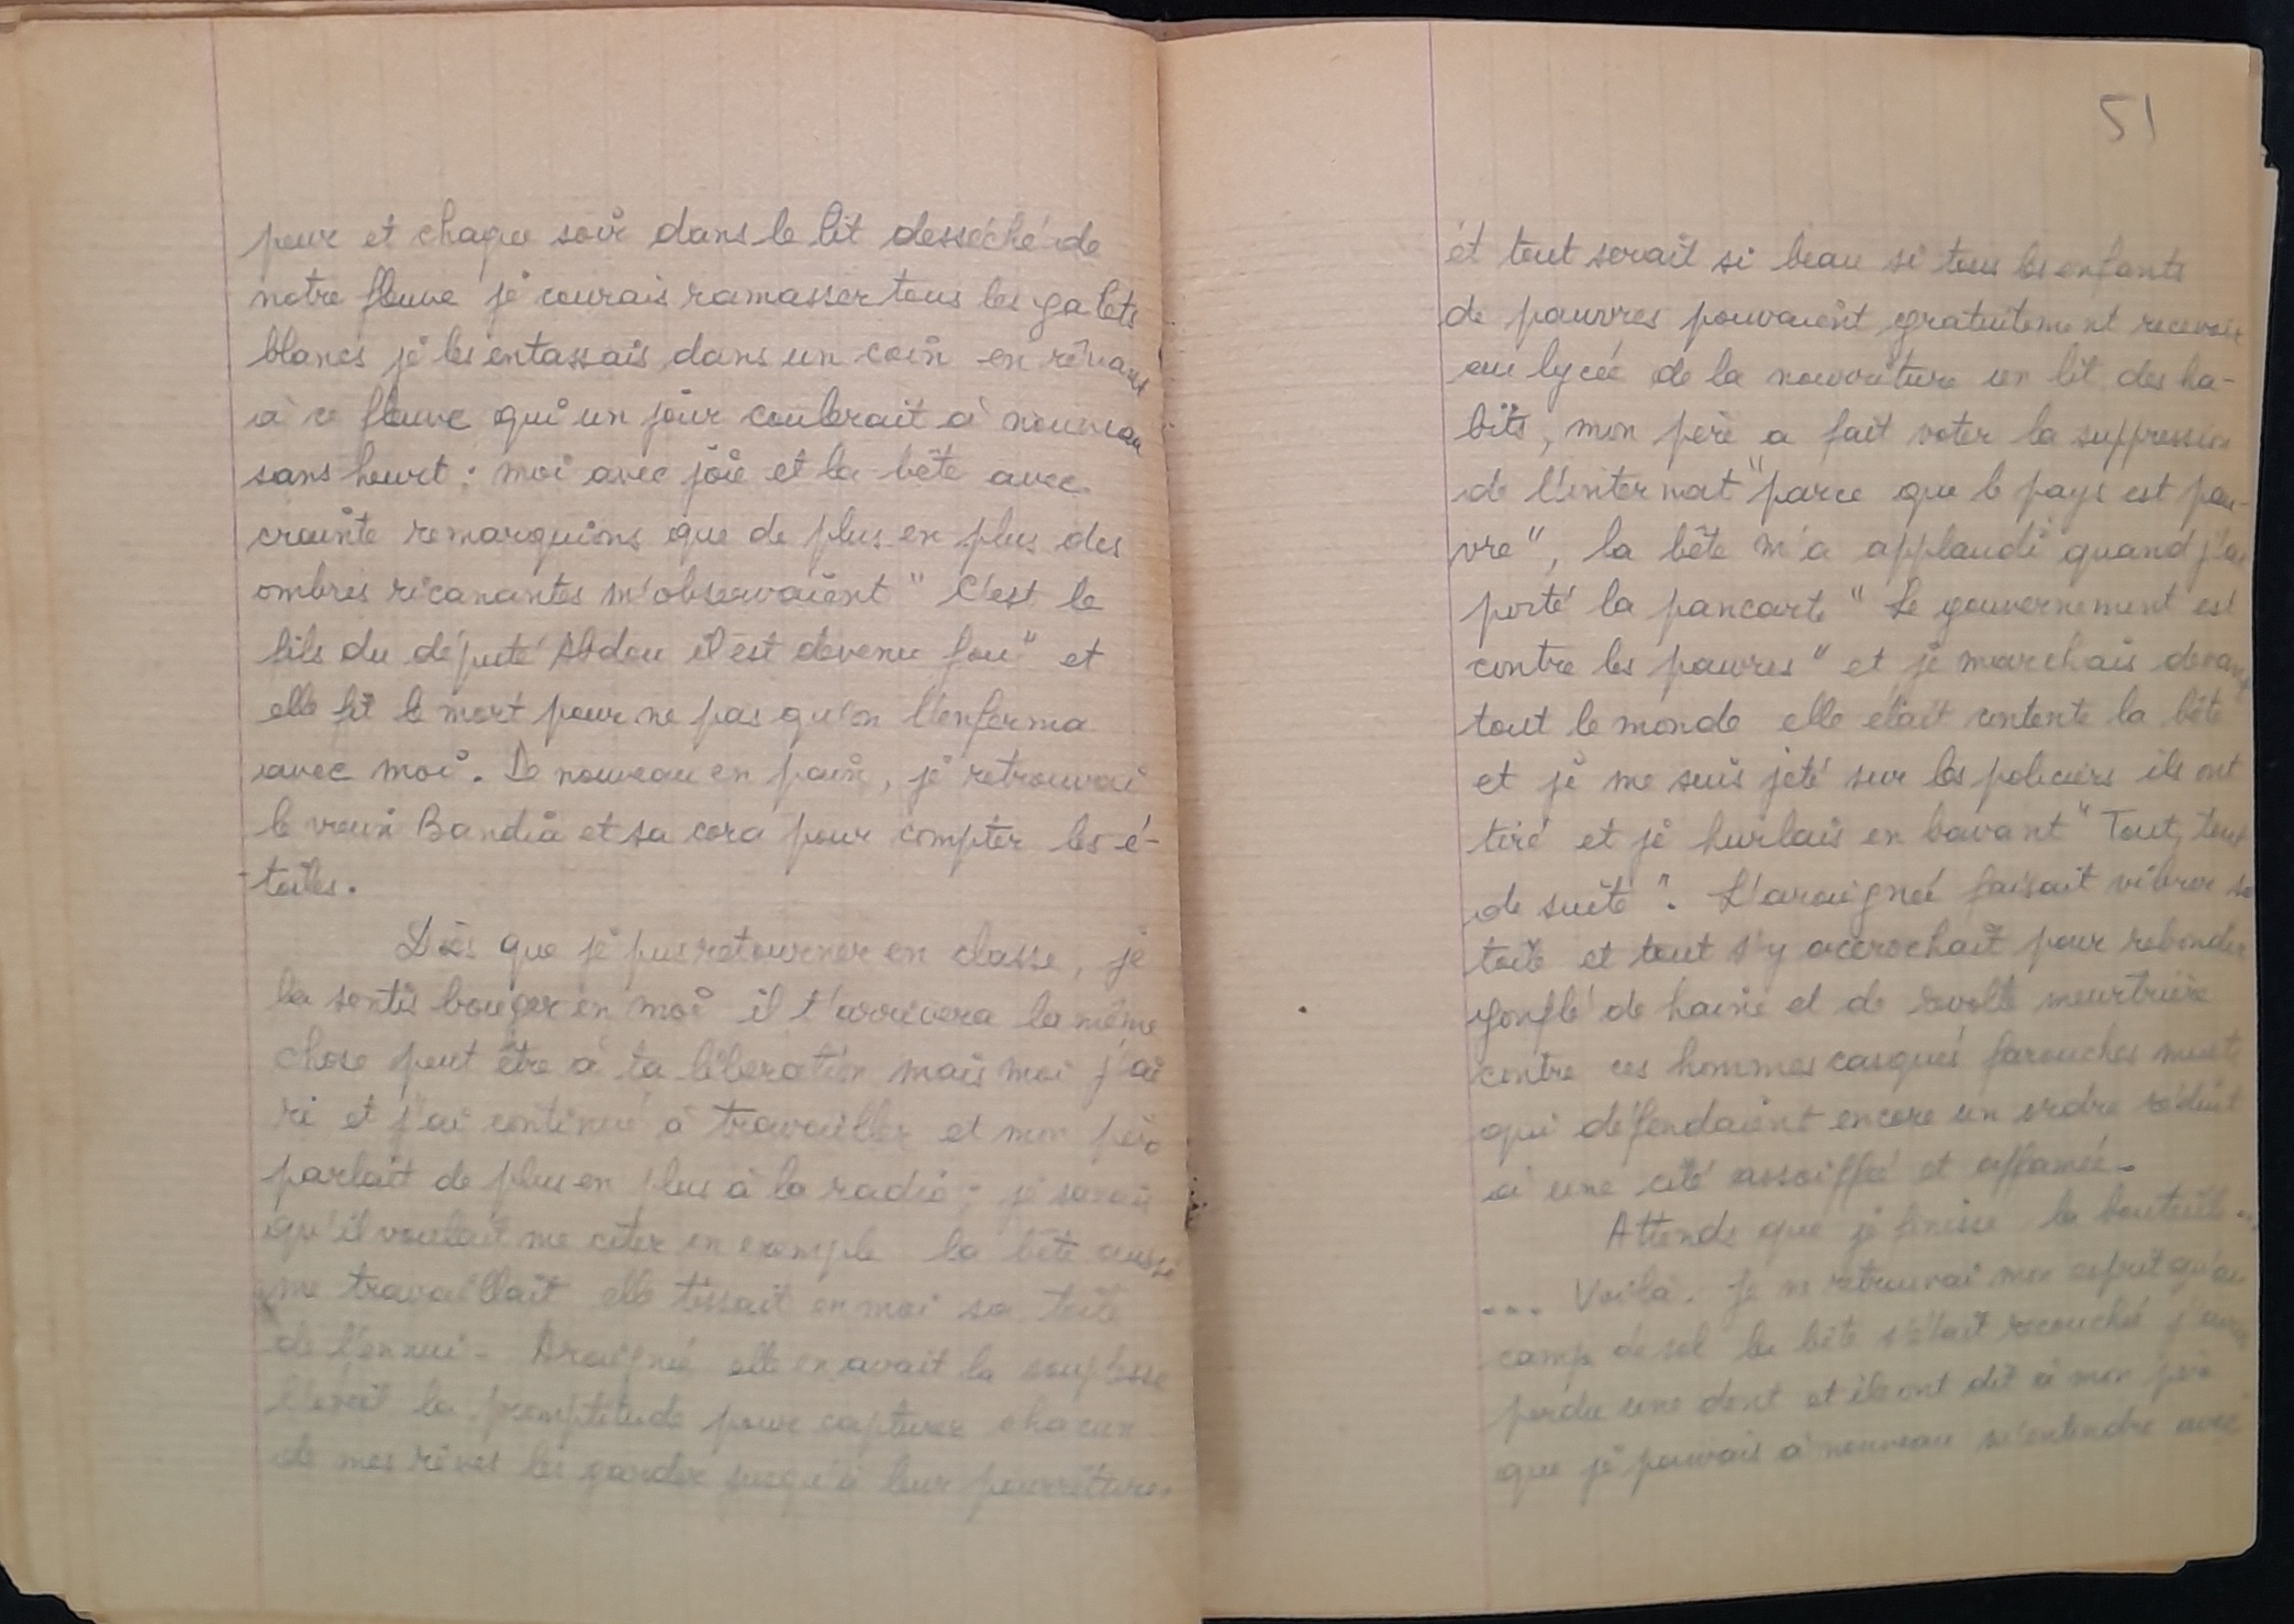 peur et chaque soir dans le lit desséché de
notre fleuve je courais ramasser tous les galets
blancs je les entassais dans un coin en rêvant
à ce fleuve qui un jour coulerait à nouveau
sans heurt : moi avec joie et la bête avec
crainte remarquions que de plus en plus des
ombres ricanantes m'observaient " C'est le
fils du député Abdou il est devenu fou " et
elle fit le mort pour ne pas qu'on l'enferma
avec moi. De nouveau en paix, je retrouvai
le vieux Bandia et sa cora pour compter les é-
toiles.
Dès que je pus retourner en classe, je
la sentis bouger en moi il t'arrivera la même
chose peut être à ta libération mais moi j'ai
ri et j'ai continué à travailler et mon père
parlait de plus en plus à la radio ; je savais
qu'il voulait me citer en exemple la bête aussi
me travaillait elle tissait en moi sa toile
de l'ennui - Araignée elle en avait la souplesse
la promptitude pour capturer chacun
de mes rêves les garder jusqu'à leur pourriture.
51
et tout serait si beau si tous les enfants
de pauvres pouvaient gratuitement recevoir
au lycée de la nourriture un lit des ha-
bits, mon père a fait voter la suppression
de l'internat "parce que le pays est pau-
vre", la bête m'a applaudi quand j'ai
porté la pancarte " Le gouvernement est
contre les pauvres " et je marchais devant
tout le monde elle était contente la bête
et je me suis jeté sur les policiers ils ont
tiré et je hurlais en bavant " Tout, tout
de suite ". L'araignée faisait vibrer sa
toile et tout s'y accrochait pour rebondir
gonflé de haine et de révolte meurtrière
contre ces hommes casqués farouches
qui défendaient encore un ordre réduit
à une cité assoiffée et affamée.
Attends que je finisse la bouteille ...
... Voilà. Je ne retrouvai mon esprit qu'au
camp de sel la bête s'était recouchée j'avais
perdu une dent et ils ont dit à mon père
que je pouvais à nouveau m'entendre avec